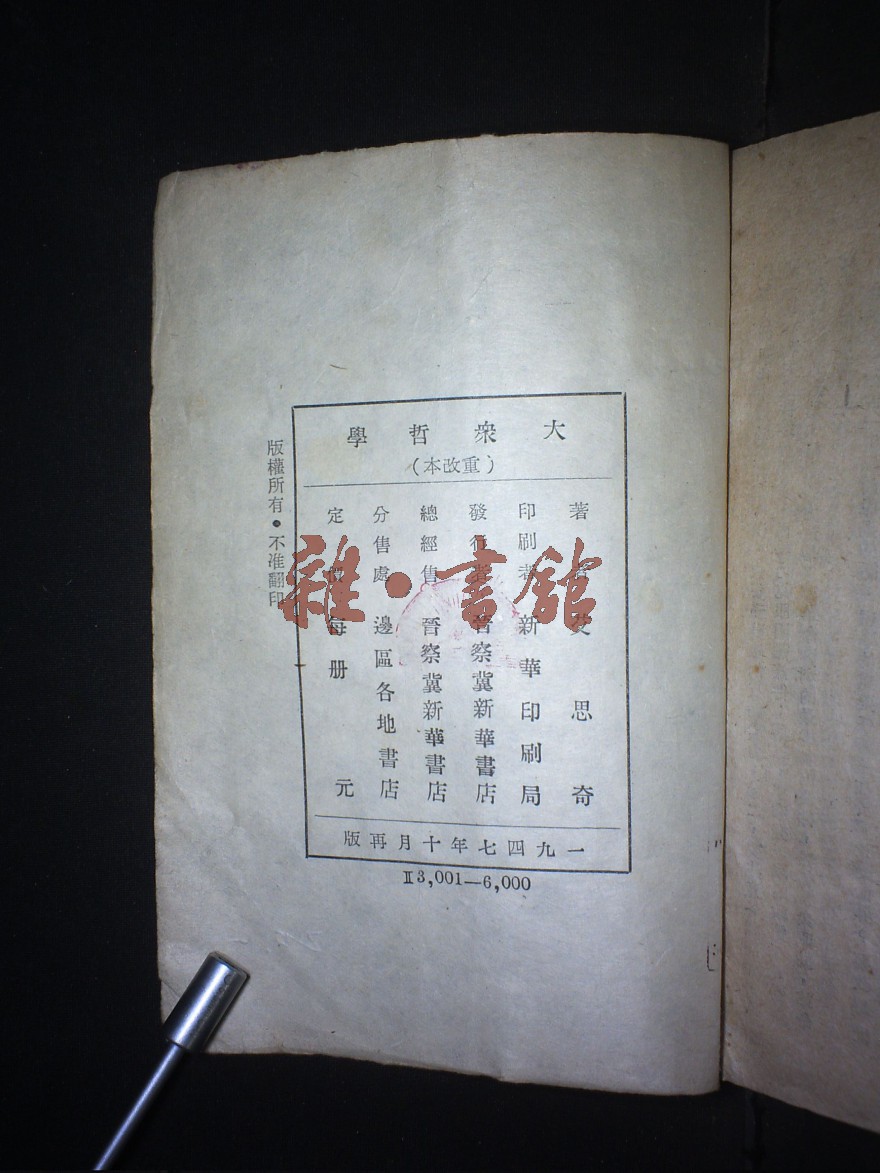 大衆哲學
（重改本）
著者 艾思奇
印刷者 新華印刷局
發行者 晉察冀新華書店
總經售 晉察冀新華書店
分售處 邊區各地書店
定價 每册 元
一九四七年十月再版
版權所有・不准翻印
Ⅱ3,001—6,000
雜・書館